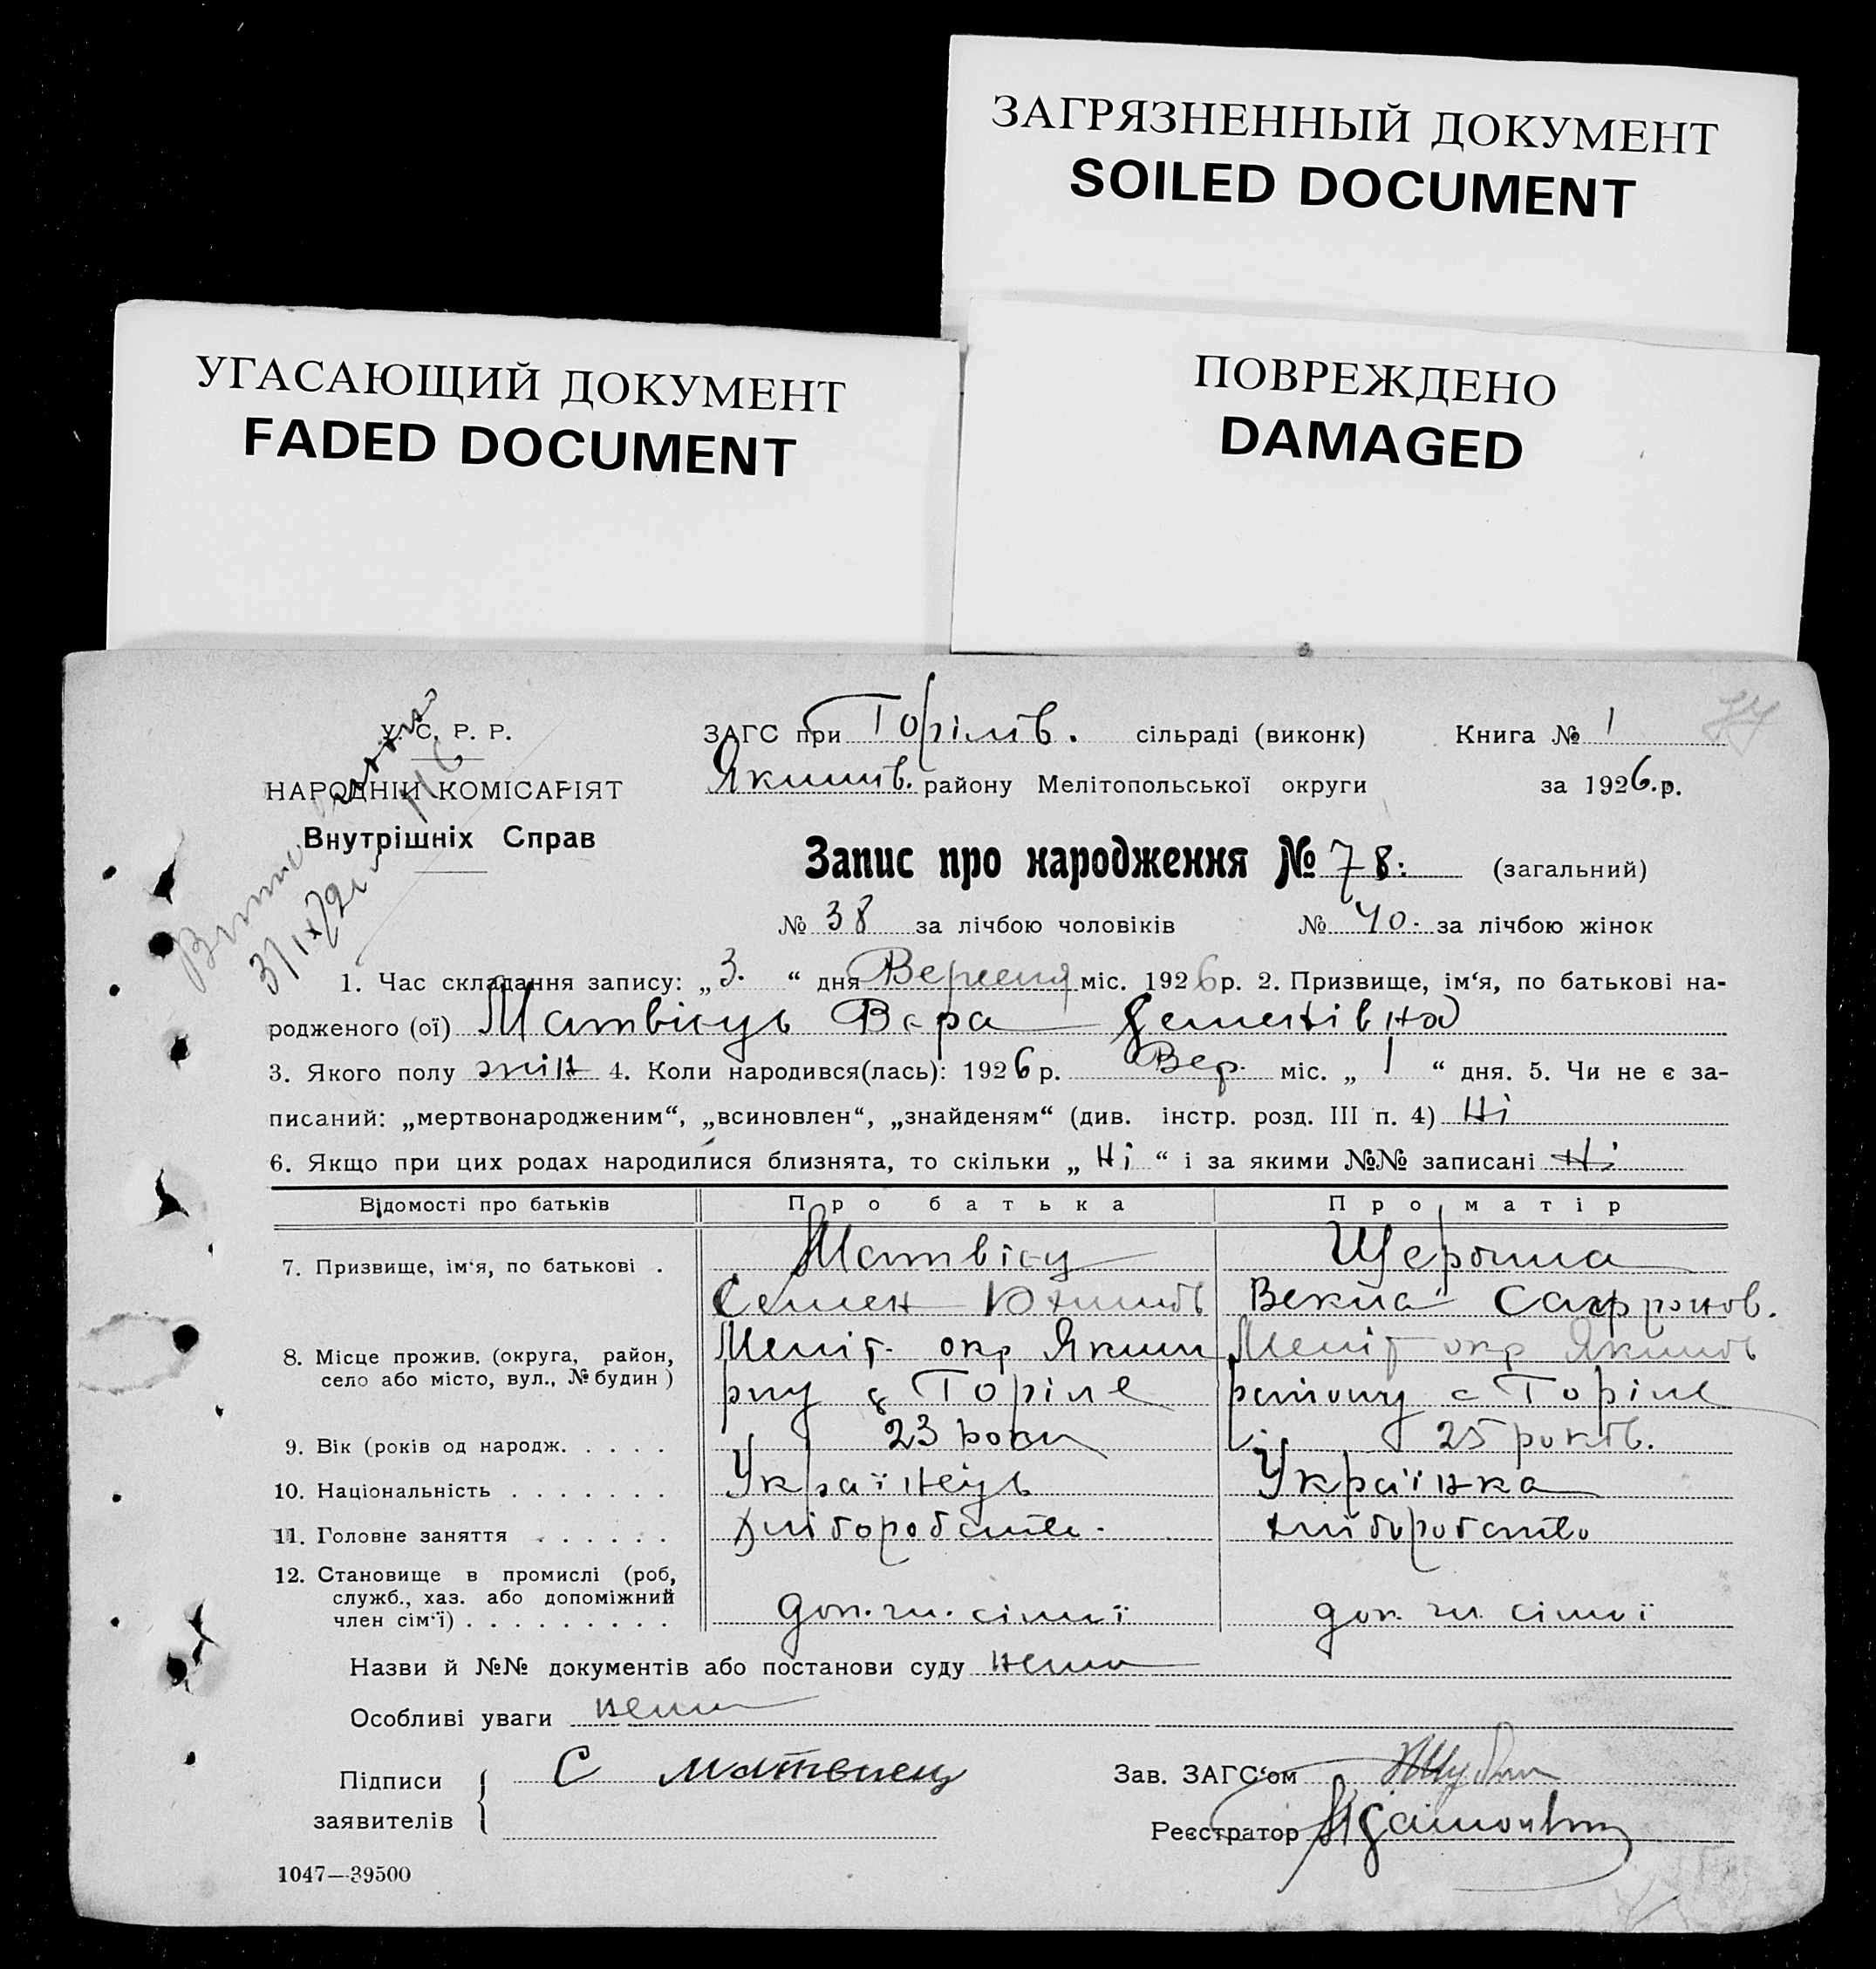 ЗАГРЯЗНЕННЫЙ ДОКУМЕНТ
SOILED DOCUMENT
УГАСАЮЩИЙ ДОКУМЕНТ
FADED DOCUMENT
ПОВРЕЖДЕНО
DAMAGED
У. С. Р. Р.
НАРОДНІЙ КОМІСАРІЯТ
Внутрішніх Справ
3/IX/26
ЗАГС при Горілів. сільраді (виконк) Книга № 1
Якимів. району Мелітопольської округи за 1926.р.
Запис про народження № 78. (загальний)
№ 38 за лічбою чоловіків № 40. за лічбою жінок
1. Час складання запису: „3.“ дня Вересня міс. 1926 р. 2. Призвище, ім‘я, по батькові на-
родженого (ої) Матвієць Вера
3. Якого полу жін 4. Коли народився(лась): 1926 р. Вер. міс. „ 1 “ дня. 5. Чи не є за-
писаний: „мертвонародженим“, „всиновлен“, „знайденям“ (див. інстр. розд. III п. 4) Ні
6. Якщо при цих родах народилися близнята, то скільки „ Ні “ і за якими №№ записані Ні
Відомості про батьків Про батька Про матір
7. Призвище, ім‘я, по батькові . Матвієц
Семен Юхимов Сафронов.
8. Місце прожив. (округа, район, Меліт. окр Яким Меліт окр Якимов
село або місто, вул., № будин) рну с Горіле району с Горіле
9. Вік (років од народж. . . . . 23 роки 25 років.
10. Національність . . . . . . . Українець Українка
11. Головне заняття . . . . . . Хліборобство. хліборобство
12. Становище в промислі (роб,
служб., хаз. або допоміжний
член сім‘ї) . . . . . . . . . доп. чл. сімї доп. чл. сімї
Назви й №№ документів або постанови суду нема
Особливі уваги нема
Підписи
заявителів
С Матвиец
Зав. ЗАГС‘ом
Реєстратор
1047—39500